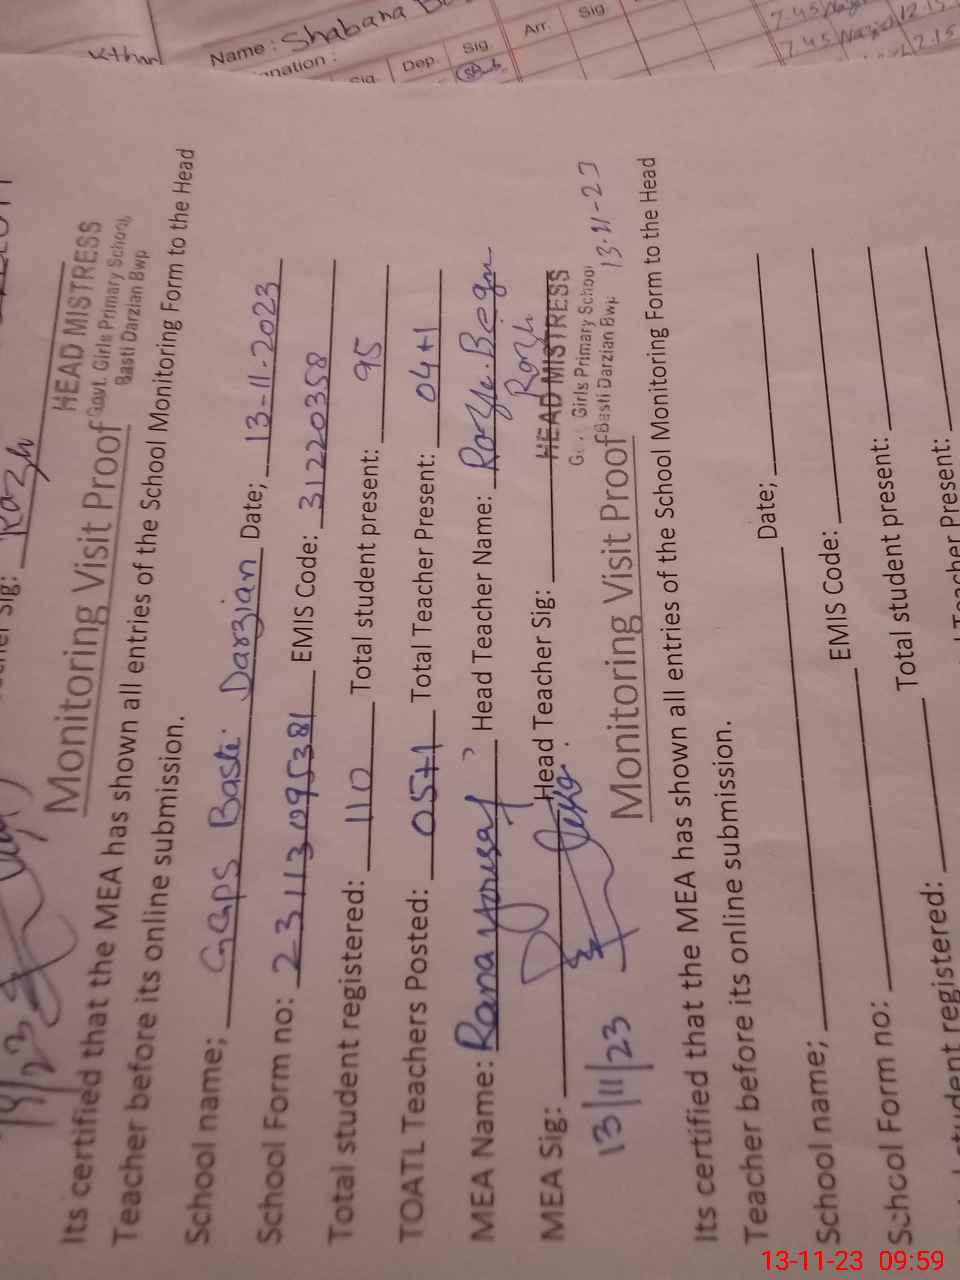 Name: Shabana
nation:
Sig. Dep. Sig. Arr. Sig
7.45 12.15
7.45 12.15
Sig:
HEAD MISTRESS
Govt. Girls Primary School,
Basti Darzian Bwp
Monitoring Visit Proof
Its certified that the MEA has shown all entries of the School Monitoring Form to the Head
Teacher before its online submission.
School name; GGPS Basti Darzian Date; 13-11-2023
School Form no: 23113095381 EMIS Code: 31220358
Total student registered: 110 Total student present: 95
TOATL Teachers Posted: 05+1 Total Teacher Present: 04+1
MEA Name: Rana Yousaf Head Teacher Name: Begum
MEA Sig: Head Teacher Sig:
HEAD MISTRESS
Girls Primary School
Basti Darzian Bwp 13-11-23
13/11/23
Monitoring Visit Proof
Its certified that the MEA has shown all entries of the School Monitoring Form to the Head
Teacher before its online submission.
School name; Date;
School Form no: EMIS Code:
Total student present:
student registered:
Teacher Present:
13-11-23 09:59